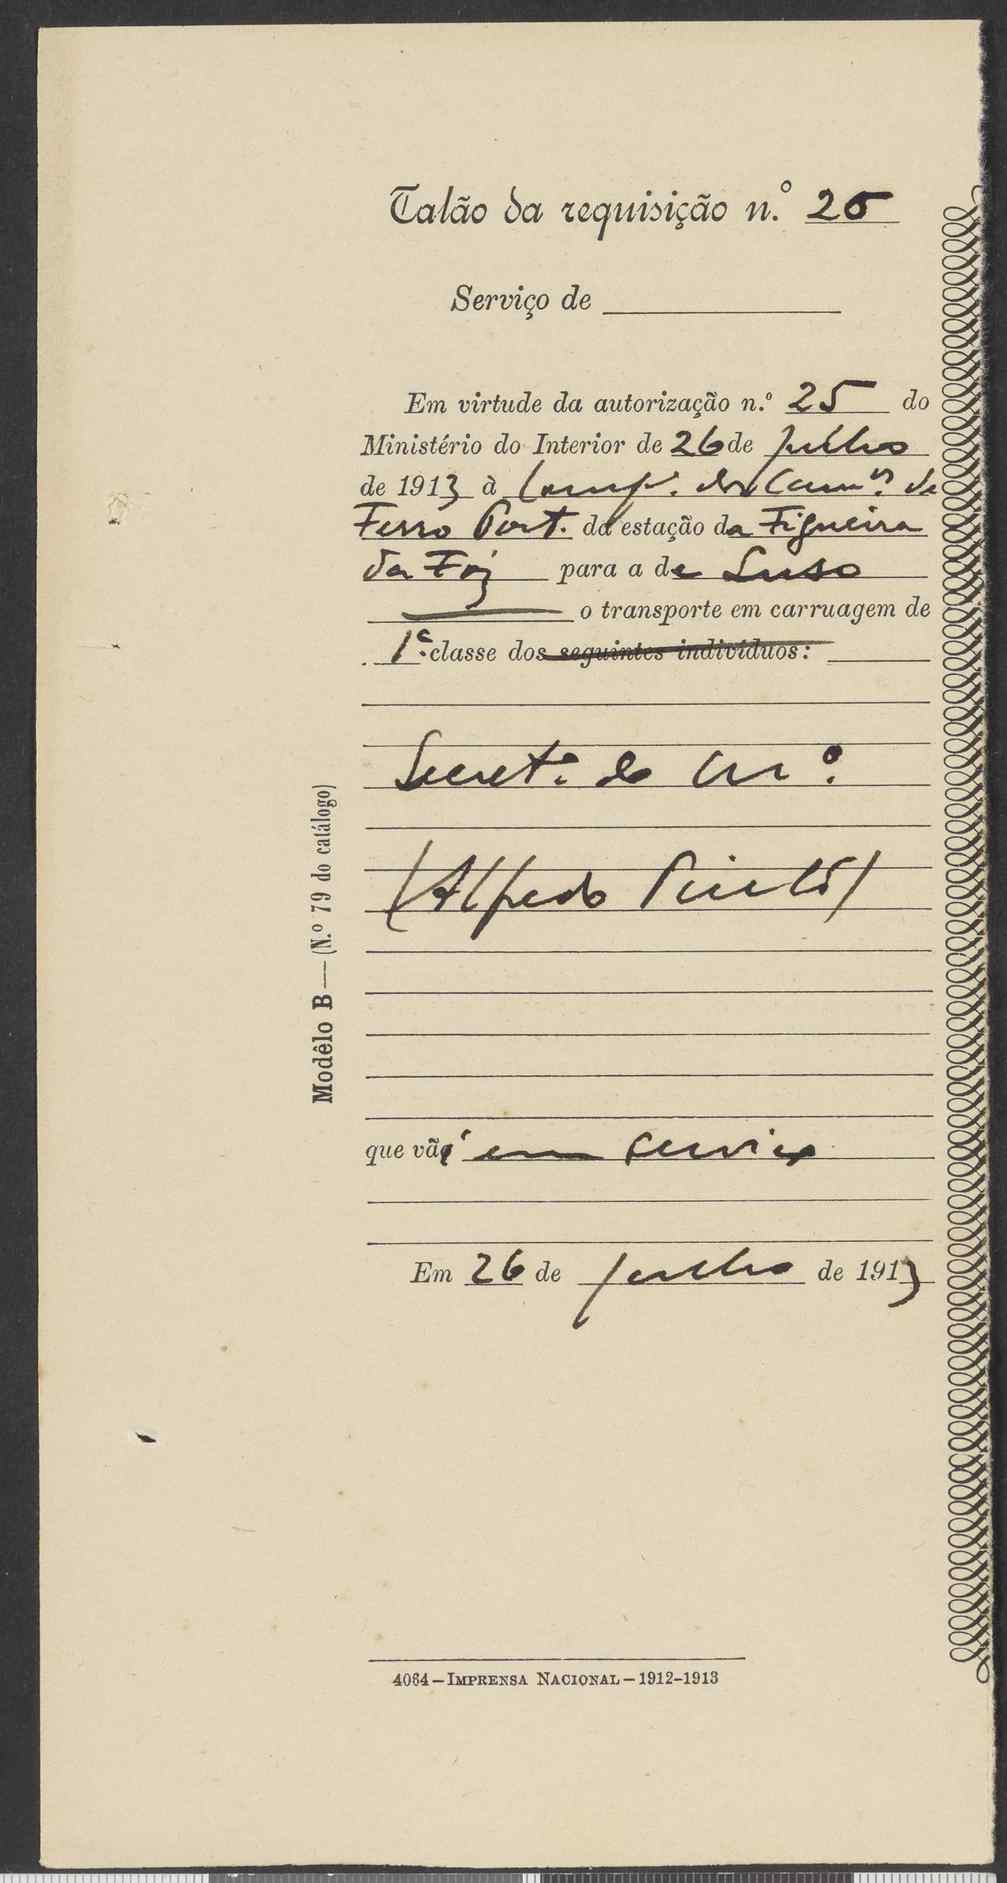 Talão da requisição n.º 25
Serviço de
Em virtude da autorização n.º 25 do
Ministério do Interior de 26 de Julho
de 1913 à Comp.ª dos Cam.os de
Ferro Port. da estação da Figueira
da Foz para a de Luso
o transporte em carruagem de
1.ª classe dos seguintes indivíduos:
Secret.º do M.º
(Alfredo Pinto)
que vai em serviço
Em 26 de Julho de 1913
4064—IMPRENSA NACIONAL—1912-1913
Modêlo B—(N.º 79 do catálogo)